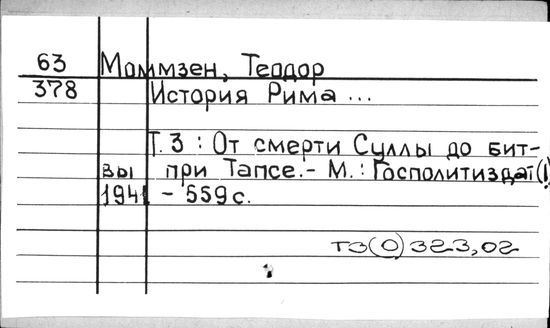 63 Моммзен, Теодор
378 История Рима ...
Т. 3 : От смерти Суллы до бит-
вы при Тапсе. - М. : Госполитиздат(!)
1941 - 559 с.
Т3(0)323,02